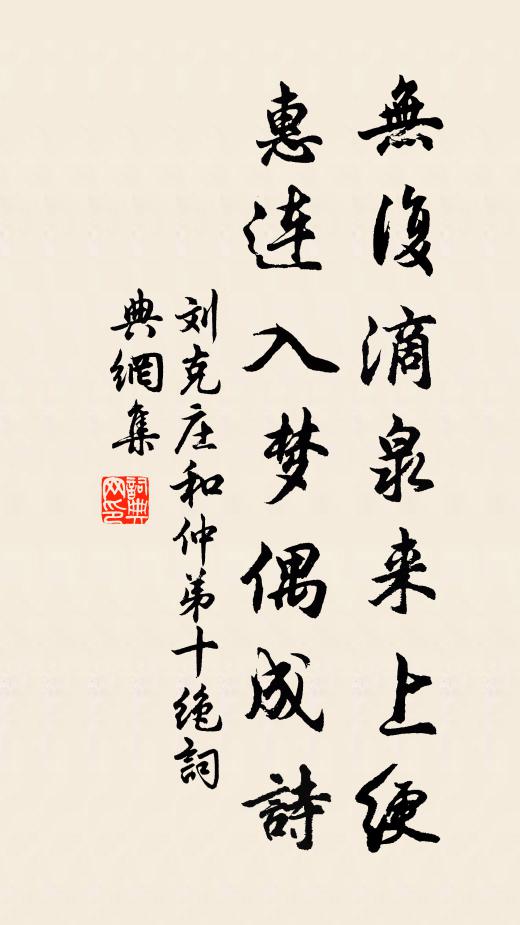 無復滴泉来上綆
惠连入梦偶成詩
刘克庄和仲弟十绝詞
典網集
詞典网印